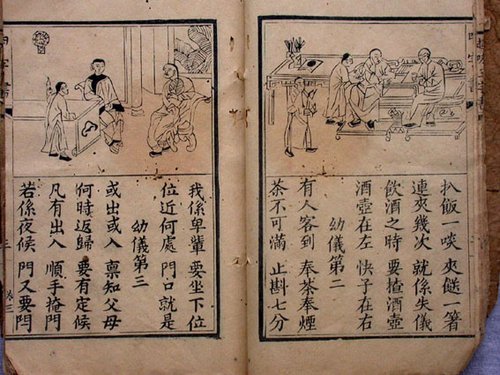 扒飯一啖 夾餸一箸
連夾幾次 就係失儀
飲酒之時 要揸酒壺
酒壺在左 快子在右
幼儀第二
有人客到 奉茶奉煙
茶不可滿 止斟七分
我係卑輩 要坐下位
位近何處 門口就是
幼儀第三
或出或入 稟知父母
何時返歸 要有定候
凡有出入 順手掩門
若係夜候 門又要閂